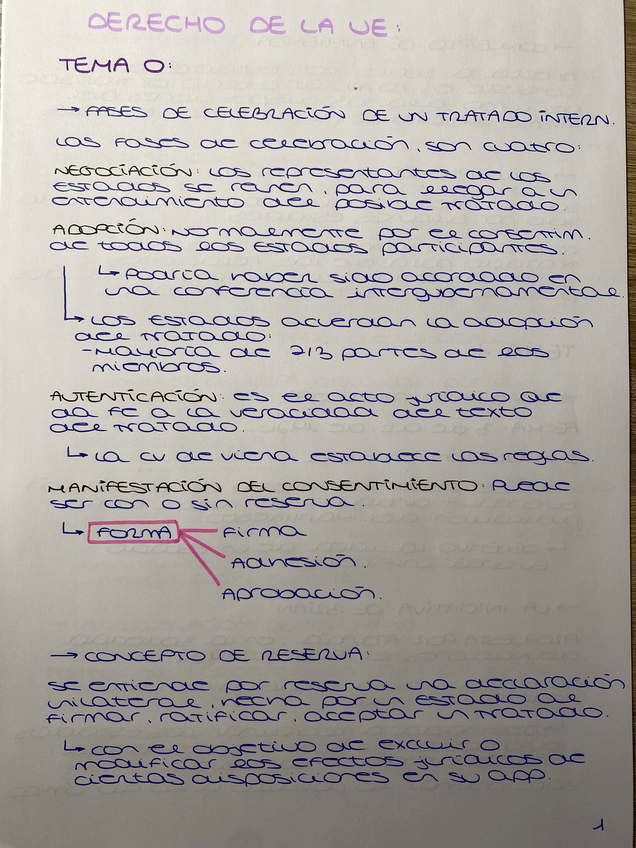 DERECHO DE LA UE:
TEMA 0:
→ FASES DE CELEBRACIÓN DE UN TRATADO INTERN.
Las fases de celebración, son cuatro:
NEGOCIACIÓN: Los representantes de los
ESTADOS se reúnen, para llegar a un
entendimiento del posible TRATADO.
ADOPCIÓN: Normalmente por el consentim.
de todos los ESTADOS participantes.
↳ Podría haber sido acordado en
una conferencia intergubernamental.
↳ Los ESTADOS acuerdan la adopción
del TRATADO:
- Mayoría de 2/3 partes de los
miembros.
AUTENTICACIÓN: es el acto jurídico que
da fe a la veracidad del texto
del TRATADO.
↳ La CV de Viena establece las reglas.
MANIFESTACIÓN DEL CONSENTIMIENTO: Puede
ser con o sin reserva.
↳ FORMA
Firma
Adhesión.
Aprobación.
→ CONCEPTO DE RESERVA:
Se entiende por reserva una declaración
unilateral, hecha por un ESTADO al
firmar, ratificar, aceptar un TRATADO.
↳ con el objetivo de excluir o
modificar los efectos jurídicos de
ciertas disposiciones en su app.
1